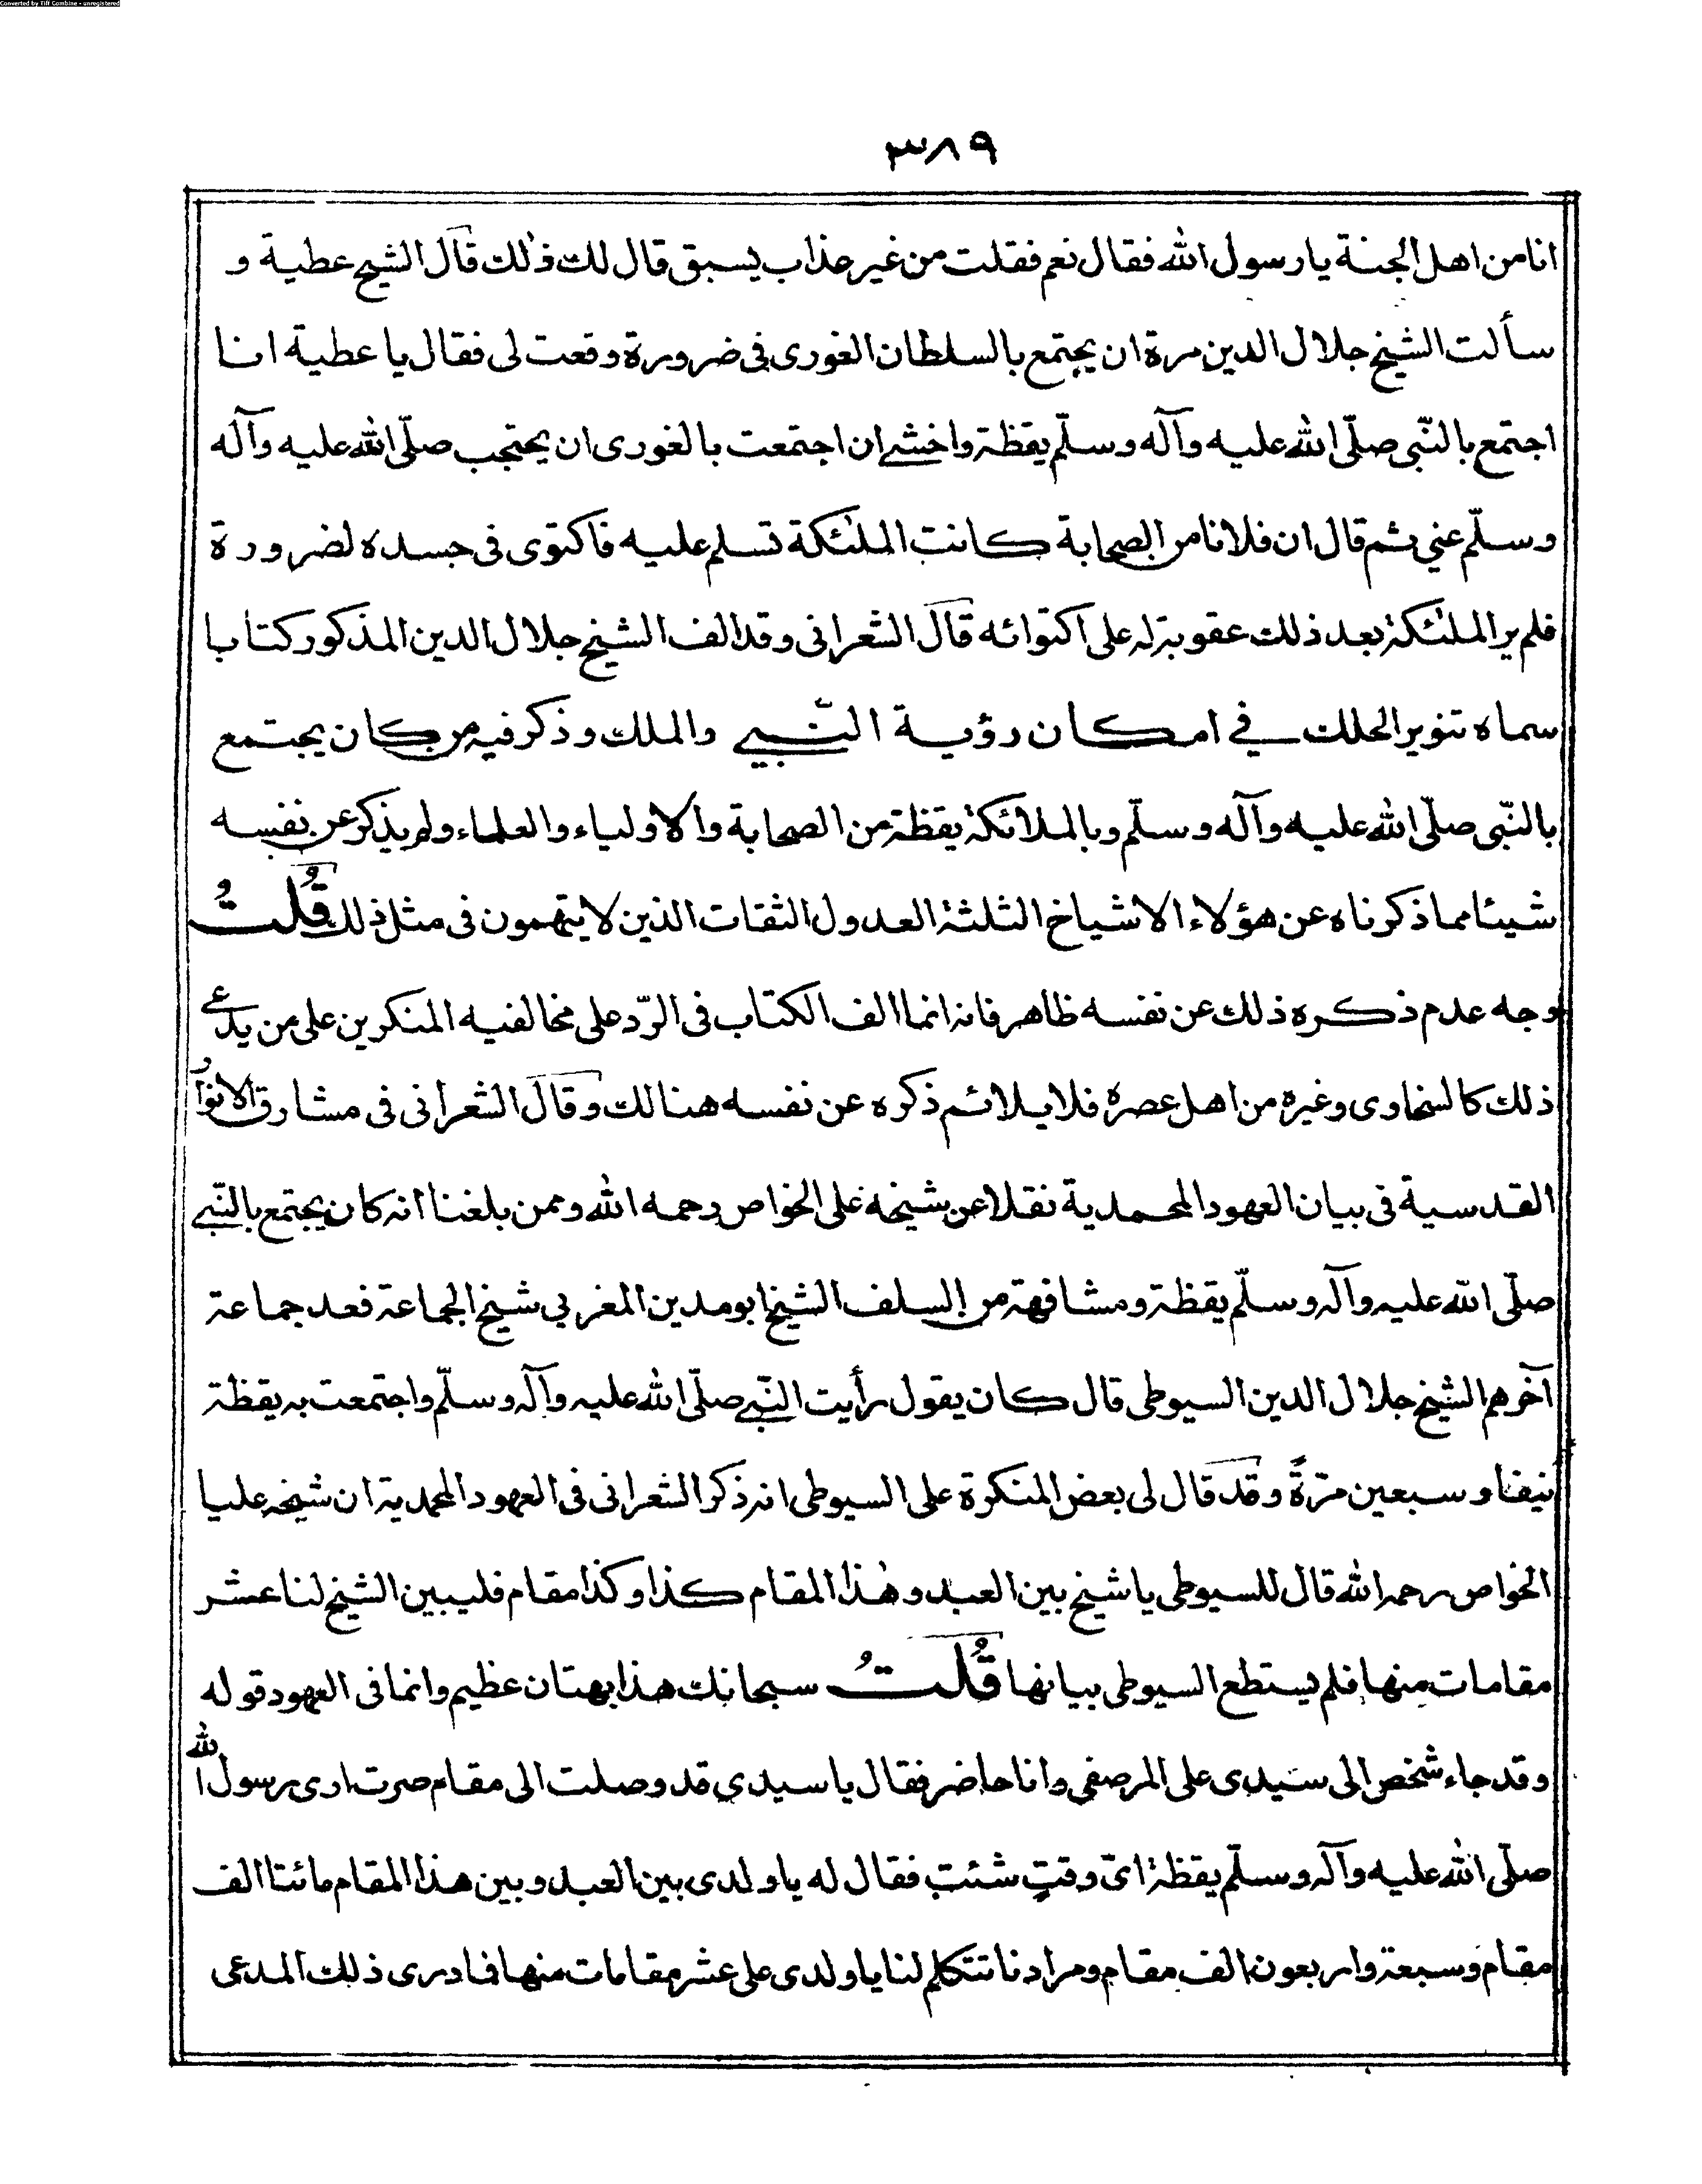 Converted by Tiff Combine - unregistered
٣٨٩
انا من اهل الجنة يا رسول الله فقال نعم فقلت من غير عذاب يسبق قال لك ذلك قال الشيخ عطية و
سألت الشيخ جلال الدين مرة ان يجتمع بالسلطان الغورى فى ضرورة وقعت لى فقال يا عطية انا
اجتمع بالنّبى صلّى الله عليه وآله وسلّم يقظة واخشى ان اجتمعت بالغورى ان يحتجب صلّى الله عليه وآله
وسلّم عني ثم قال ان فلانا من الصحابة كانت الملئكة تسلم عليه فاكتوى فى جسده لضرورة
فلم ير الملئكة بعد ذلك عقوبة له على اكتوائه قال الشعرانى وقد الف الشيخ جلال الدين المذكور كتابا
سماه تنوير الحلك في امكان رؤية النّبي والملك وذكر فيه من كان يجتمع
بالنّبى صلّى الله عليه وآله وسلّم وبالملائكة يقظة من الصحابة والاولياء والعلماء ولم يذكر عن نفسه
شيئا مما ذكرناه عن هؤلاء الاشياخ الثلثة العدول الثقات الذين لا يتهمون فى مثل ذلك قُلتُ
وجه عدم ذكره ذلك عن نفسه ظاهر فانه انما الف الكتاب فى الرّد على مخالفيه المنكرين على من يدعى
ذلك كالسخاوى وغيره من اهل عصره فلا يلائم ذكره عن نفسه هنالك وقال الشعرانى فى مشارق الانوار
القدسية فى بيان العهود المحمدية نقلا عن شيخه على الخواص رحمه الله وممن بلغنا انه كان يجتمع بالنّبي
صلّى الله عليه وآله وسلّم يقظة ومشافهة من السلف الشيخ ابو مدين المغربي شيخ الجماعة فعد جماعة
آخرهم الشيخ جلال الدين السيوطى قال كان يقول رأيت النّبي صلّى الله عليه وآله وسلّم واجتمعت به يقظة
نيفا وسبعين مرّةً وقد قال لى بعض المنكرة على السيوطى انه ذكر الشعرانى فى العهود المحمدية ان شيخه عليا
الخواص رحمه الله قال للسيوطى يا شيخ بين العبد وهذا المقام كذا وكذا مقام فليبين الشيخ لنا عشر
مقامات منها فلم يستطع السيوطى بيانها قُلتُ سبحانك هذا بهتان عظيم وانما فى العهود قوله
وقد جاء شخص الى سيدى على المرصفى وانا حاضر فقال يا سيدي قد وصلت الى مقام صرت ارى رسول الله
صلّى الله عليه وآله وسلّم يقظة اىّ وقتٍ شئت فقال له يا ولدى بين العبد وبين هذا المقام مائتا الف
مقام وسبعة واربعون الف مقام ومرادنا تتكلم لنا يا ولدى على عشر مقامات منها فما درى ذلك المدعى